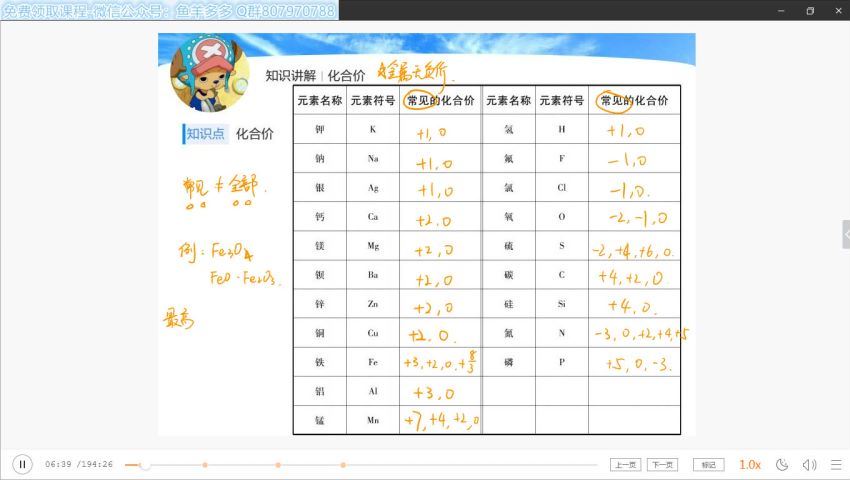 免费领取课程-微信公众号：鱼羊多多 Q群807970788
知识讲解 | 化合价 金属无负价.
知识点 化合价
元素名称 元素符号 常见的化合价 元素名称 元素符号 常见的化合价
钾 K +1, 0 氢 H +1, 0
钠 Na +1, 0 氟 F -1, 0
银 Ag +1, 0 氯 Cl -1, 0.
钙 Ca +2, 0 氧 O -2, -1, 0
镁 Mg +2, 0 硫 S -2, +4, +6, 0.
钡 Ba +2, 0 碳 C +4, +2, 0.
锌 Zn +2, 0 硅 Si +4, 0.
铜 Cu +2, 0. 氮 N -3, 0, +2, +4, +5
铁 Fe +3, +2, 0, +8/3 磷 P +5, 0, -3.
铝 Al +3, 0
锰 Mn +7, +4, +2, 0
常见 ≠ 全部.
例: Fe₃O₄
FeO·Fe₂O₃.
最高
06:39 /194:26
上一页 下一页 标记 1.0x